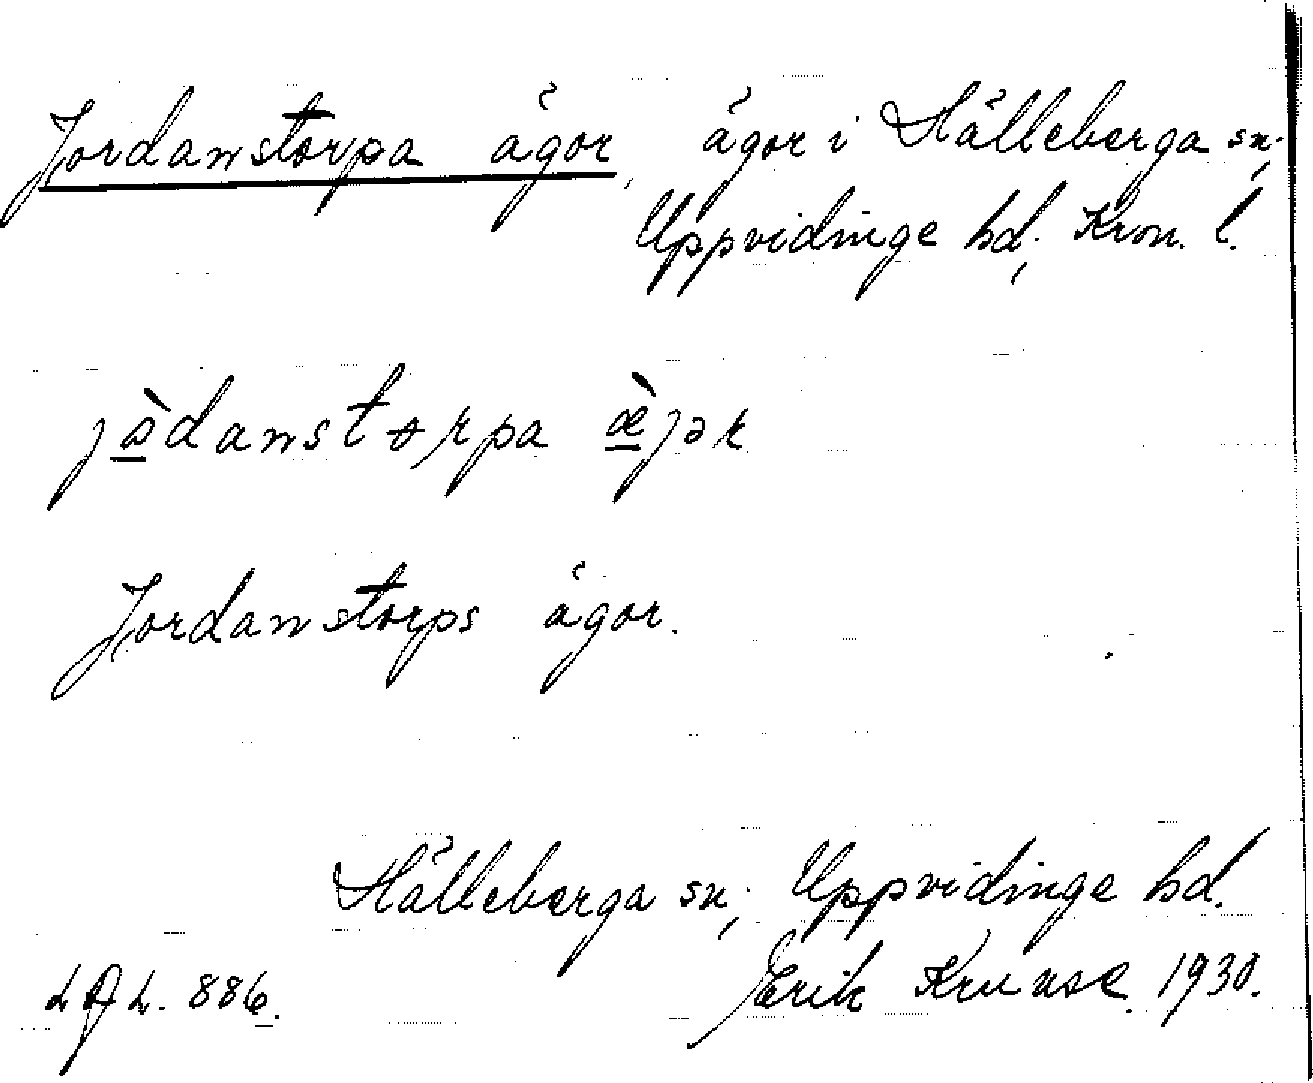 Jordanstorpa ägor, ägor i Hälleberga sn.,
Uppvidinge hd., Kron. l.
jòdanstɷrpa æ̀jər
Jordanstorps ägor.
Hälleberga sn., Uppvidinge hd.
LAL. 886. Erik Kruuse. 1930.